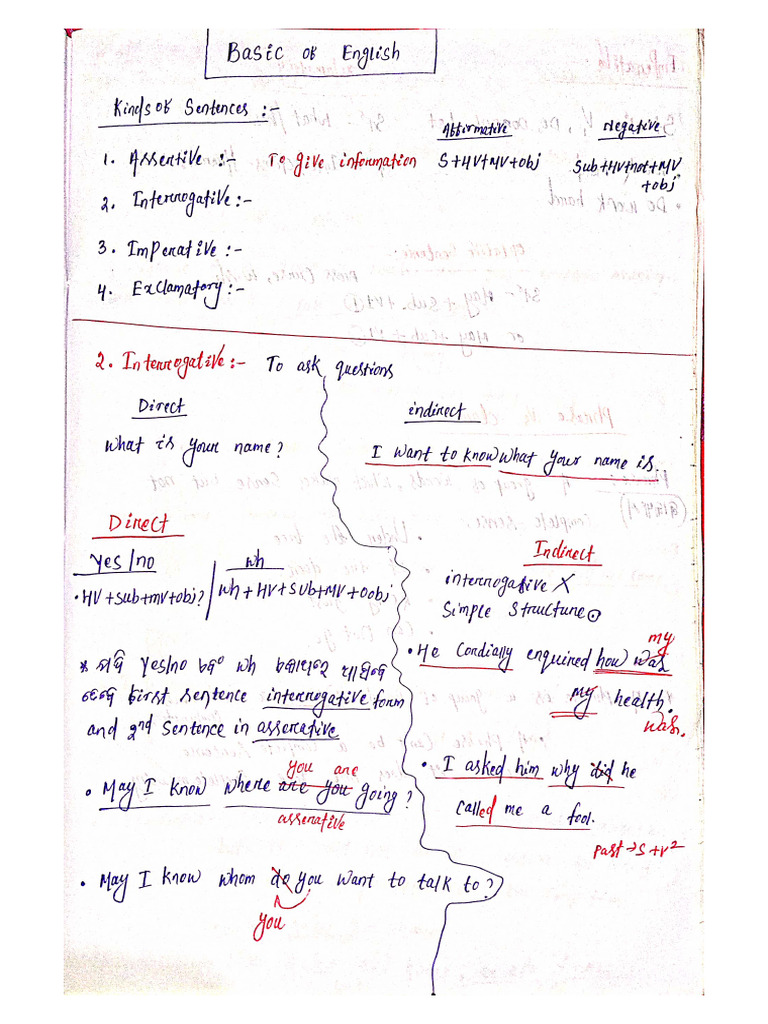 Basic of English
Kinds of Sentences :-
Affirmative Negative
1. Assertive :- To give information S+HV+MV+obj Sub+HV+not+MV
+obj
2. Interrogative :-
3. Imperative :-
4. Exclamatory :-
2. Interrogative :- To ask questions
Direct
What is your name?
indirect
I want to know what your name is.
Direct
Yes/no wh
• HV+sub+mv+obj? wh+HV+SUb+MV+Oobj
* ଯଦି yes/no ଏବଂ wh
first sentence interrogative form
and 2nd sentence in asserative
you are
• May I know where are you going?
asserative
• May I know whom do you want to talk to?
you
Indirect
interrogative X
Simple Structure
my
• He Cordially enquired how was
my health.
was.
• I asked him why did he
called me a fool.
Past→S+V²